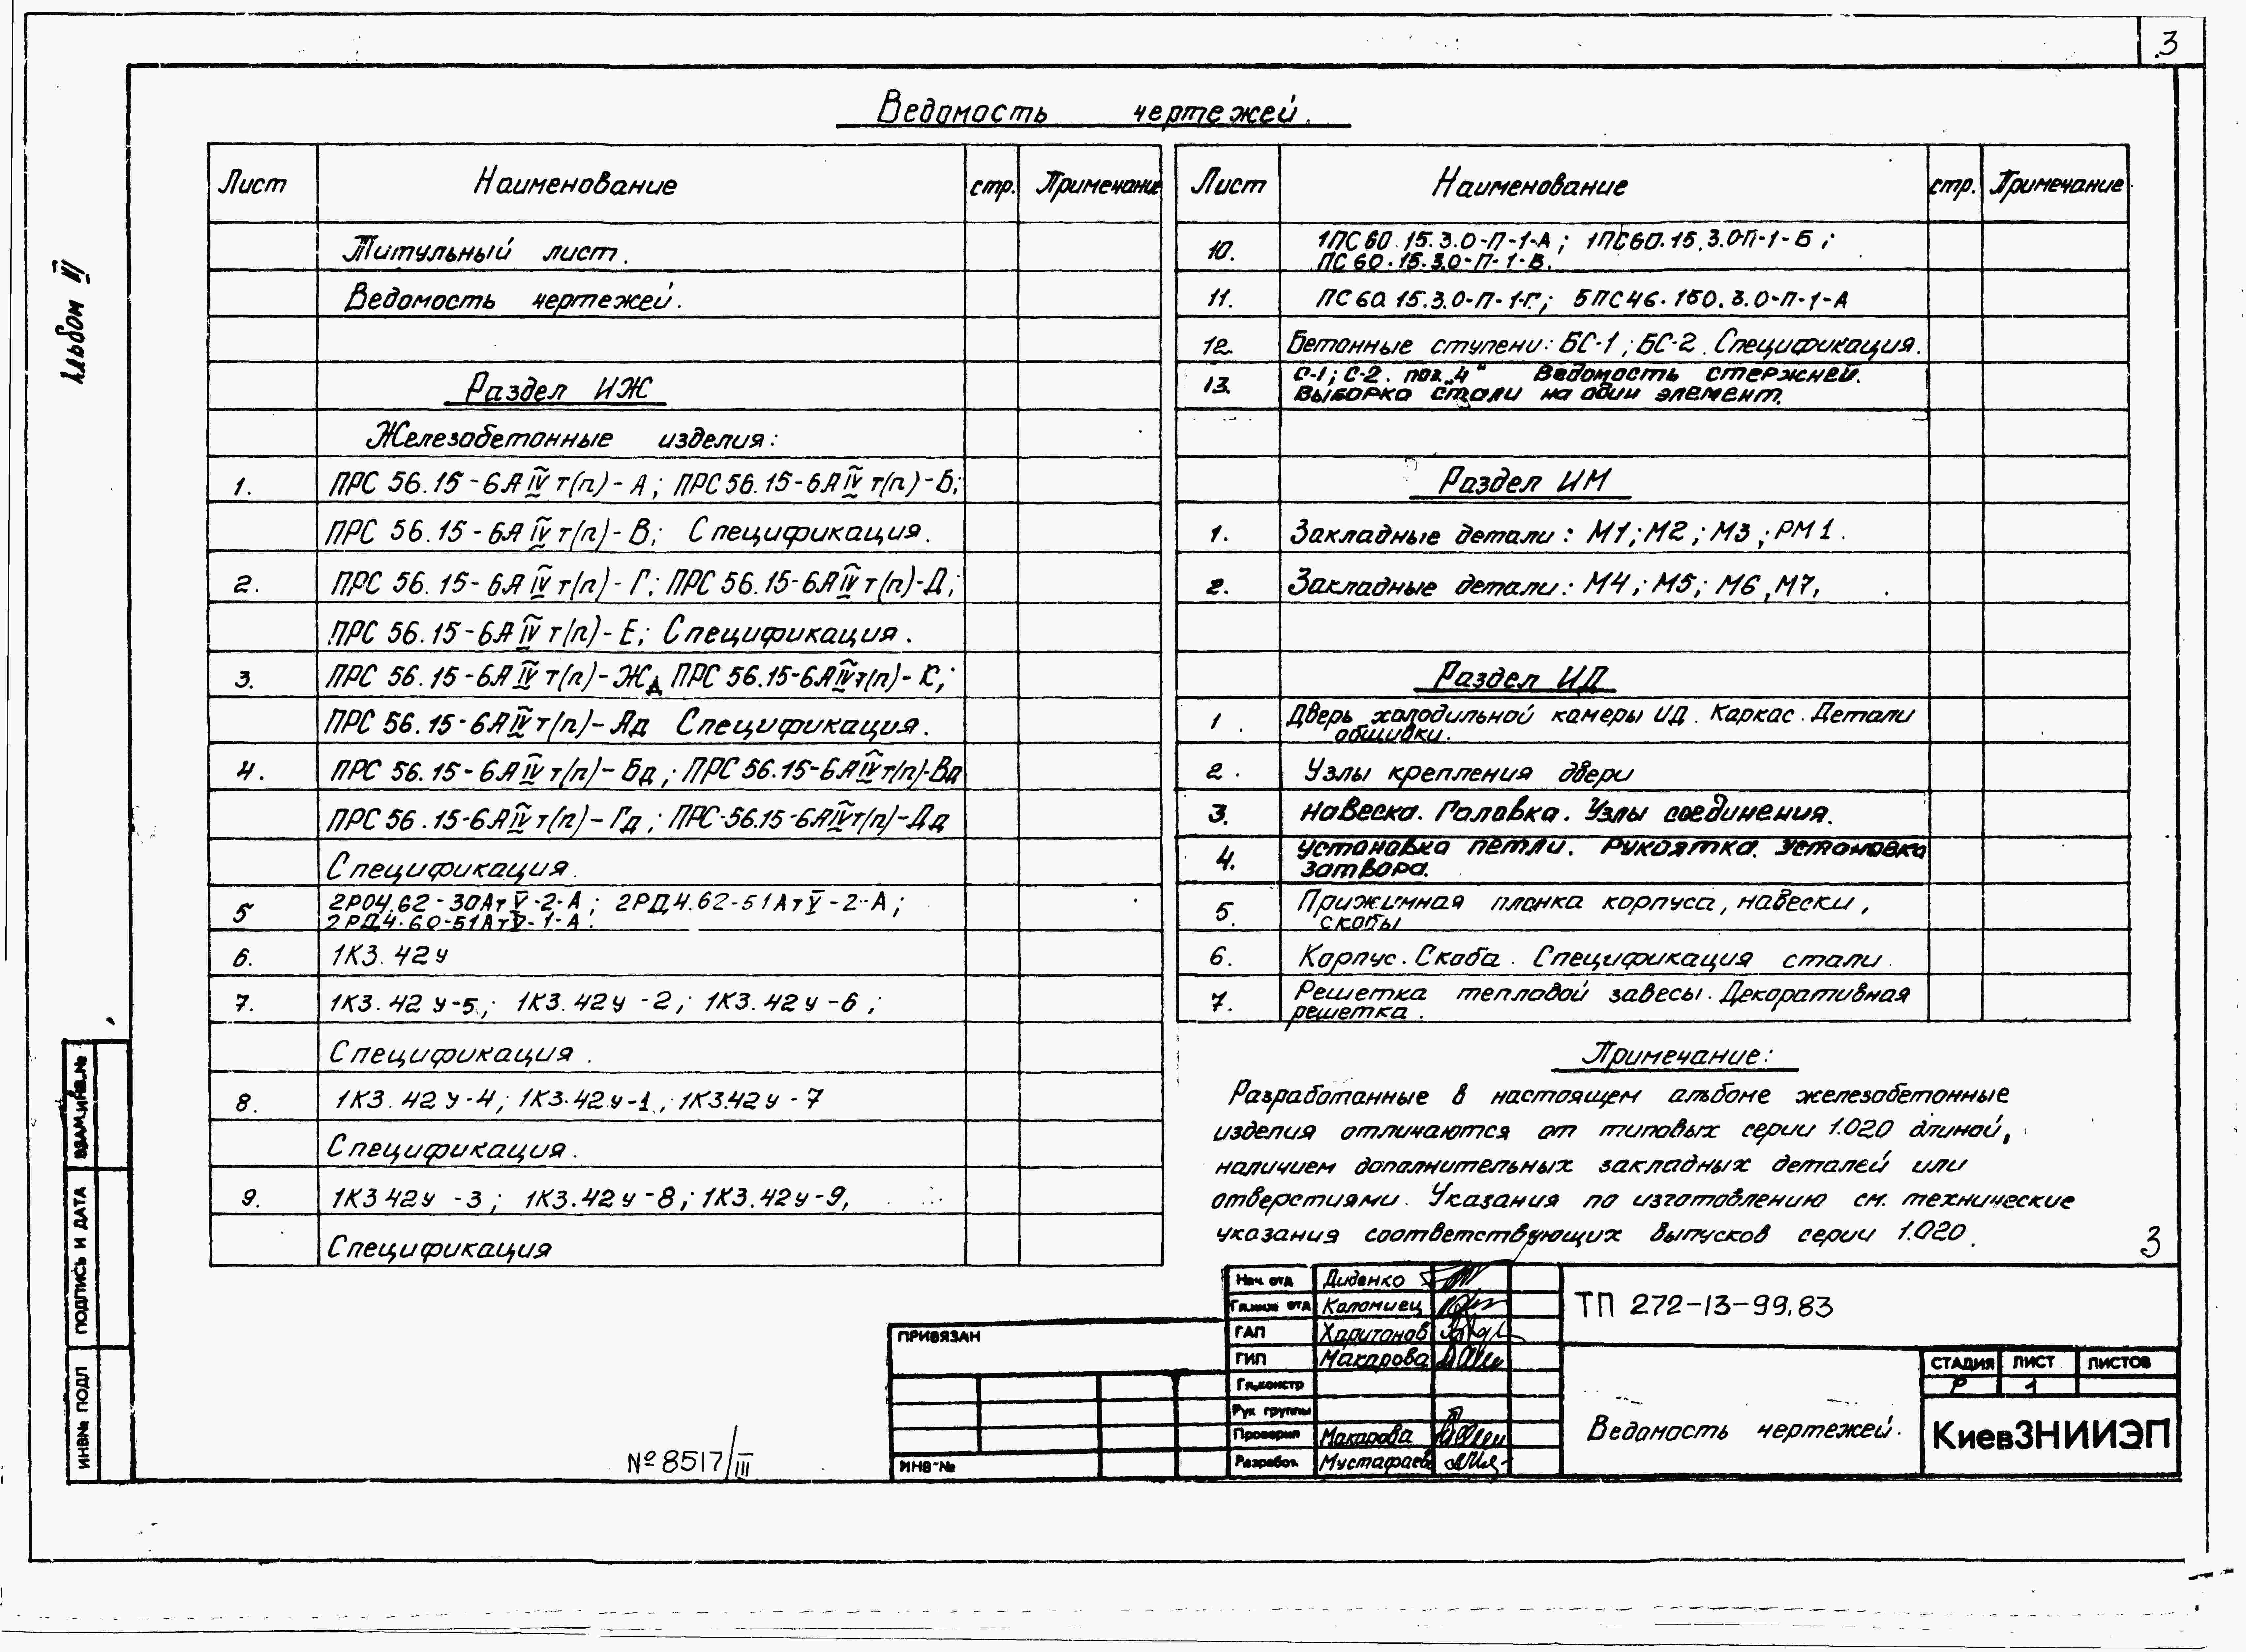 3
Ведомость чертежей.
Альбом VI
Лист Наименование стр. Примечание
Титульный лист.
Ведомость чертежей.
Раздел ИЖ
Железобетонные изделия:
1. ПРС 56.15-6АIVт(п)-А; ПРС 56.15-6АIVт(п)-Б;
ПРС 56.15-6АIVт(п)-В; Спецификация.
2. ПРС 56.15-6АIVт(п)-Г; ПРС 56.15-6АIVт(п)-Д;
ПРС 56.15-6АIVт(п)-Е; Спецификация.
3. ПРС 56.15-6АIVт(п)-Жд ПРС 56.15-6АIVт(п)-К;
ПРС 56.15-6АIVт(п)-Ад Спецификация.
4. ПРС 56.15-6АIVт(п)-Бд; ПРС 56.15-6АIVт(п)-Вд
ПРС 56.15-6АIVт(п)-Гд; ПРС-56.15-6АIVт(п)-Дд
Спецификация.
5 2Р04.62-30АтV-2-А; 2РД4.62-51АтV-2-А;
2РД4.60-51АтV-1-А.
6. 1К3.42у
7. 1К3.42у-5; 1К3.42у-2; 1К3.42у-6;
Спецификация.
8. 1К3.42у-4; 1К3.42у-1; 1К3.42у-7
Спецификация.
9. 1К3 42у-3; 1К3.42у-8; 1К3.42у-9,
Спецификация
Лист Наименование стр. Примечание
10. 1ПС60.15.3.0-П-1-А; 1ПС60.15.3.0П-1-Б;
ПС60.15.3.0-П-1-В.
11. ПС60.15.3.0-П-1-Г; 5ПС46.150.3.0-П-1-А
12. Бетонные ступени: БС-1; БС-2. Спецификация.
13. С-1; С-2. поз. „4" Ведомость стержней.
Выборка стали на один элемент.
Раздел ИМ
1. Закладные детали: М1; М2; М3; РМ1.
2. Закладные детали: М4; М5; М6, М7,
Раздел ИД
1. Дверь холодильной камеры ИД. Каркас. Детали
обшивки.
2. Узлы крепления двери
3. Навеска. Головка. Узлы соединения.
4. Установка петли. Рукоятка. Установка
затвора.
5. Прижимная планка корпуса, навески,
скобы
6. Корпус. Скоба. Спецификация стали.
7. Решетка тепловой завесы. Декоративная
решетка.
Примечание:
Разработанные в настоящем альбоме железобетонные
изделия отличаются от типовых серии 1.020 длиной,
наличием дополнительных закладных деталей или
отверстиями. Указания по изготовлению см. технические
указания соответствующих выпусков серии 1.020.
3
ВЗАМ.ИНВ.№
ПОДПИСЬ И ДАТА
ИНВ№ ПОДЛ
№8517/III
ПРИВЯЗАН
ИНВ-№
Нач. отд Диденко
Гл.инж отд Коломиец
ГАП Харитонов
ГИП Макарова
Гл.констр
Рук группы
Проверил Макарова
Разработ. Мустафаева
ТП 272-13-99.83
Ведомость чертежей.
СТАДИЯ ЛИСТ ЛИСТОВ
Р 1
КиевЗНИИЭП